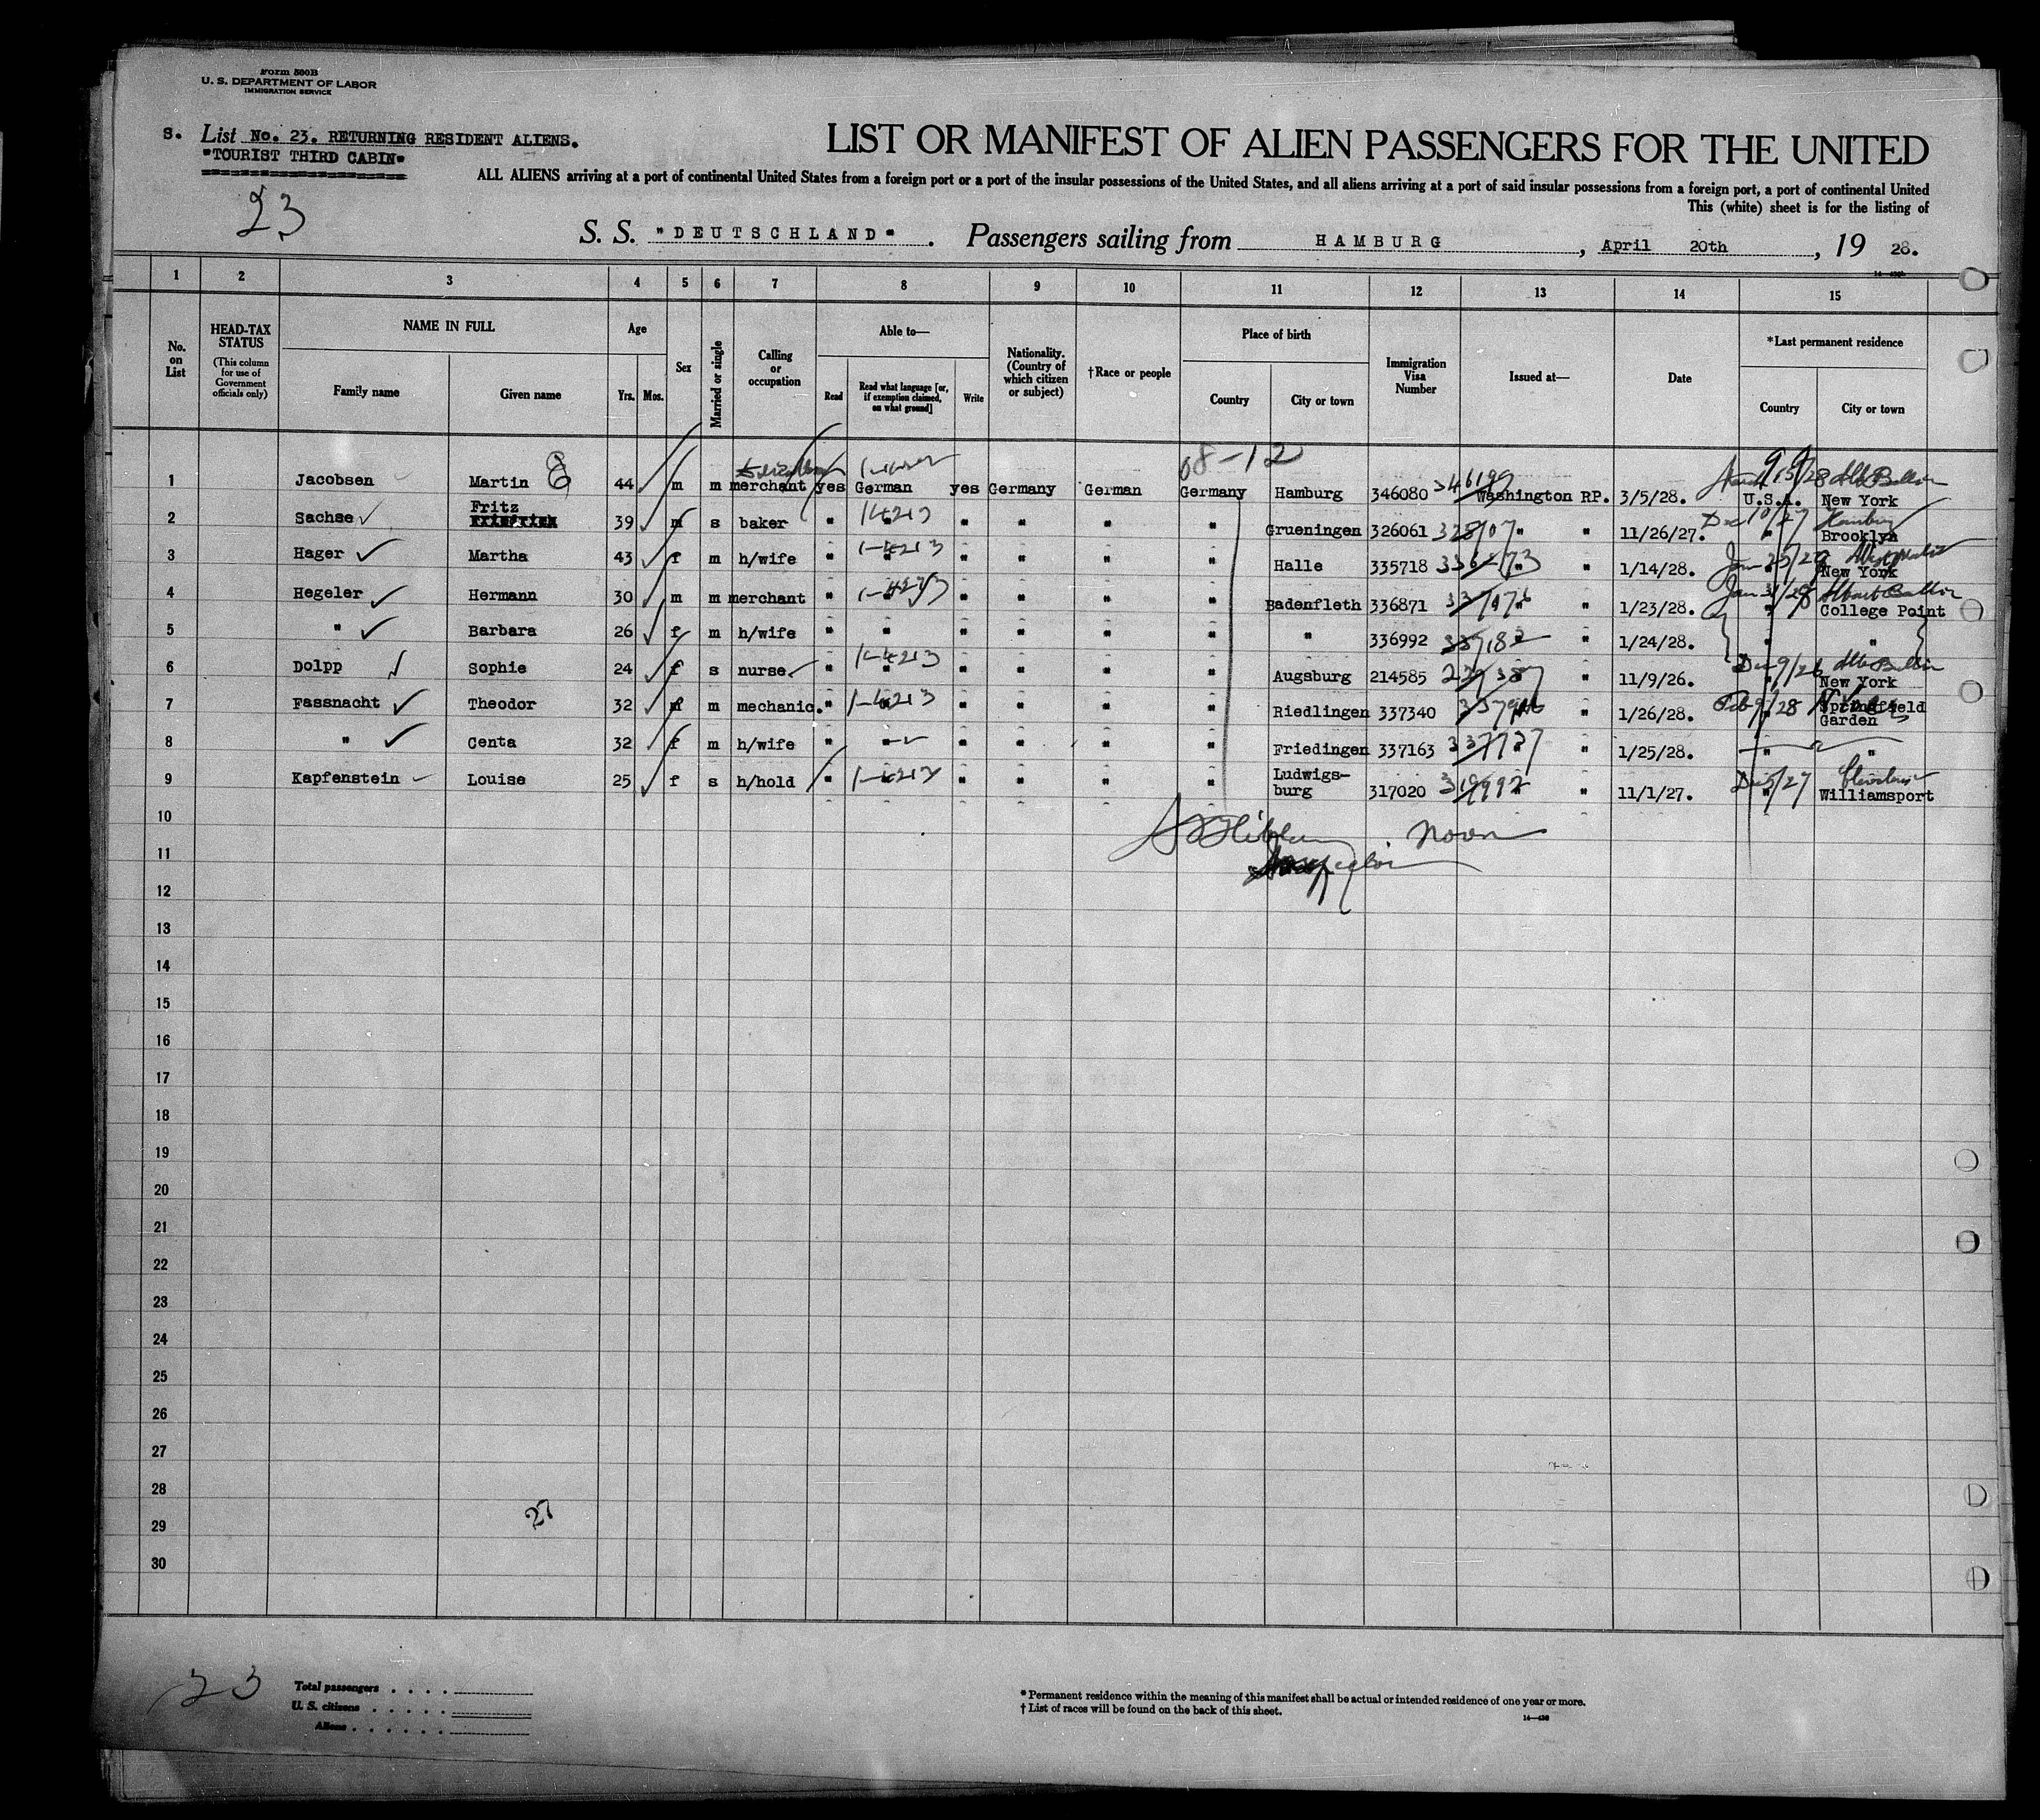 Form 500B
U. S. DEPARTMENT OF LABOR
IMMIGRATION SERVICE
S. List No. 23. RETURNING RESIDENT ALIENS.
"TOURIST THIRD CABIN"
23
LIST OR MANIFEST OF ALIEN PASSENGERS FOR THE UNITED
ALL ALIENS arriving at a port of continental United States from a foreign port or a port of the insular possessions of the United States, and all aliens arriving at a port of said insular possessions from a foreign port, a port of continental United
This (white) sheet is for the listing of
S. S. "DEUTSCHLAND". Passengers sailing from HAMBURG, April 20th, 19 28.
1 2 3 4 5 6 7 8 9 10 11 12 13 14 15
No. on List
HEAD-TAX STATUS (This column for use of Government officials only)
NAME IN FULL
Family name
Given name
Age
Yrs. Mos.
Sex
Married or single
Calling or occupation
Able to—
Read
Read what language [or, if exemption claimed, on what ground]
Write
Nationality. (Country of which citizen or subject)
†Race or people
Place of birth
Country
City or town
Immigration Visa Number
Issued at—
Date
*Last permanent residence
Country
City or town
08-12
1 Jacobsen Martin 44 m m merchant yes German yes Germany German Germany Hamburg 346080 Washington RP. 3/5/28. U.S.A. New York
2 Sachse Fritz 39 m s baker " " " " " " Grueningen 326061 " " 11/26/27. " Brooklyn
3 Hager Martha 43 f m h/wife " " " " " " Halle 335718 " " 1/14/28. " New York
4 Hegeler Hermann 30 m m merchant " " " " " " Badenfleth 336871 " " 1/23/28. " College Point
5 " Barbara 26 f m h/wife " " " " " " " 336992 " " 1/24/28. " "
6 Dolpp Sophie 24 f s nurse " " " " " " Augsburg 214585 " " 11/9/26. " New York
7 Fassnacht Theodor 32 m m mechanic. " " " " " " Riedlingen 337340 " " 1/26/28. " Springfield Garden
8 " Centa 32 f m h/wife " " " " " " Friedingen 337163 " " 1/25/28. " "
9 Kapfenstein Louise 25 f s h/hold " " " " " " Ludwigs-burg 317020 " " 11/1/27. " Williamsport
10 Noon
11 Inspector
12
13
14
15
16
17
18
19
20
21
22
23
24
25
26
27
28
29
30
27
23
Total passengers
U. S. citizens
Aliens
* Permanent residence within the meaning of this manifest shall be actual or intended residence of one year or more.
† List of races will be found on the back of this sheet.